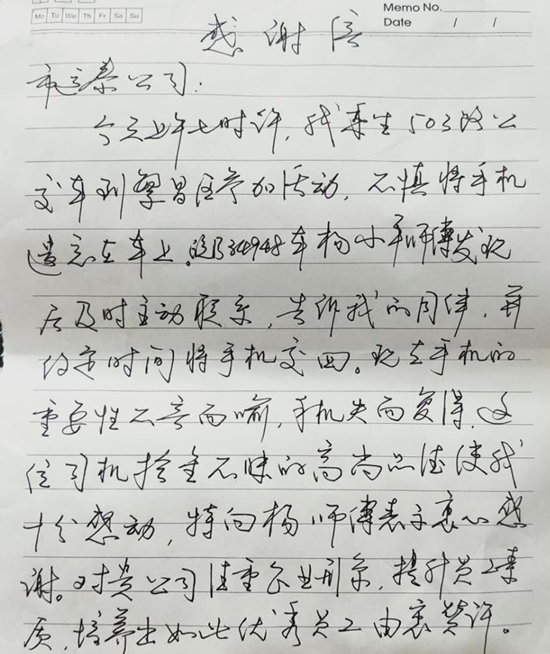 Memo No.
Mo Tu We Th Fr Sa Su
Date / /
感谢信
公司:
今天上午七时许,我乘坐503路公
交车到学昌路参加活动,不慎将手机
遗忘在车上。34948车杨小平师傅发现
后及时主动联系,告诉我的同伴,并
约定时间将手机交回。现在手机的
重要性不言而喻,手机失而复得,这
位司机拾金不昧的高尚品德使我
十分感动,特向杨师傅表示衷心感
谢。对贵公司注重企业形象,提升员工素
质,培养出如此优秀员工由衷赞许。